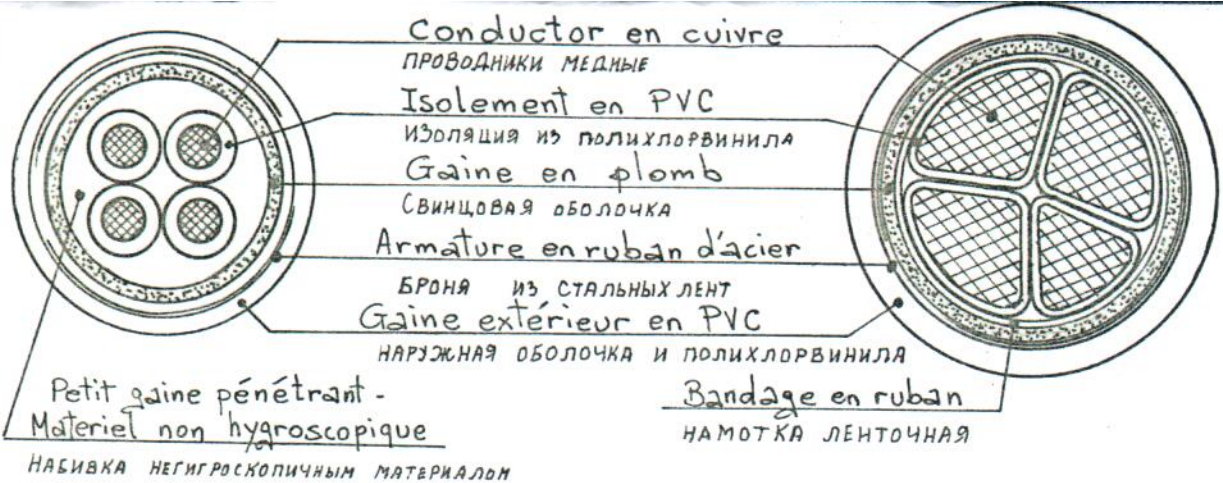 Conductor en cuivre
ПРОВОДНИКИ МЕДНЫЕ
Isolement en PVC
ИЗОЛЯЦИЯ ИЗ ПОЛИХЛОРВИНИЛА
Gaine en plomb
СВИНЦОВАЯ ОБОЛОЧКА
Armature en ruban d'acier
БРОНЯ ИЗ СТАЛЬНЫХ ЛЕНТ
Gaine extérieur en PVC
НАРУЖНАЯ ОБОЛОЧКА И ПОЛИХЛОРВИНИЛА
Petit gaine pénétrant -
Materiel non hygroscopique
НАБИВКА НЕГИГРОСКОПИЧНЫМ МАТЕРИАЛОМ
Bandage en ruban
НАМОТКА ЛЕНТОЧНАЯ